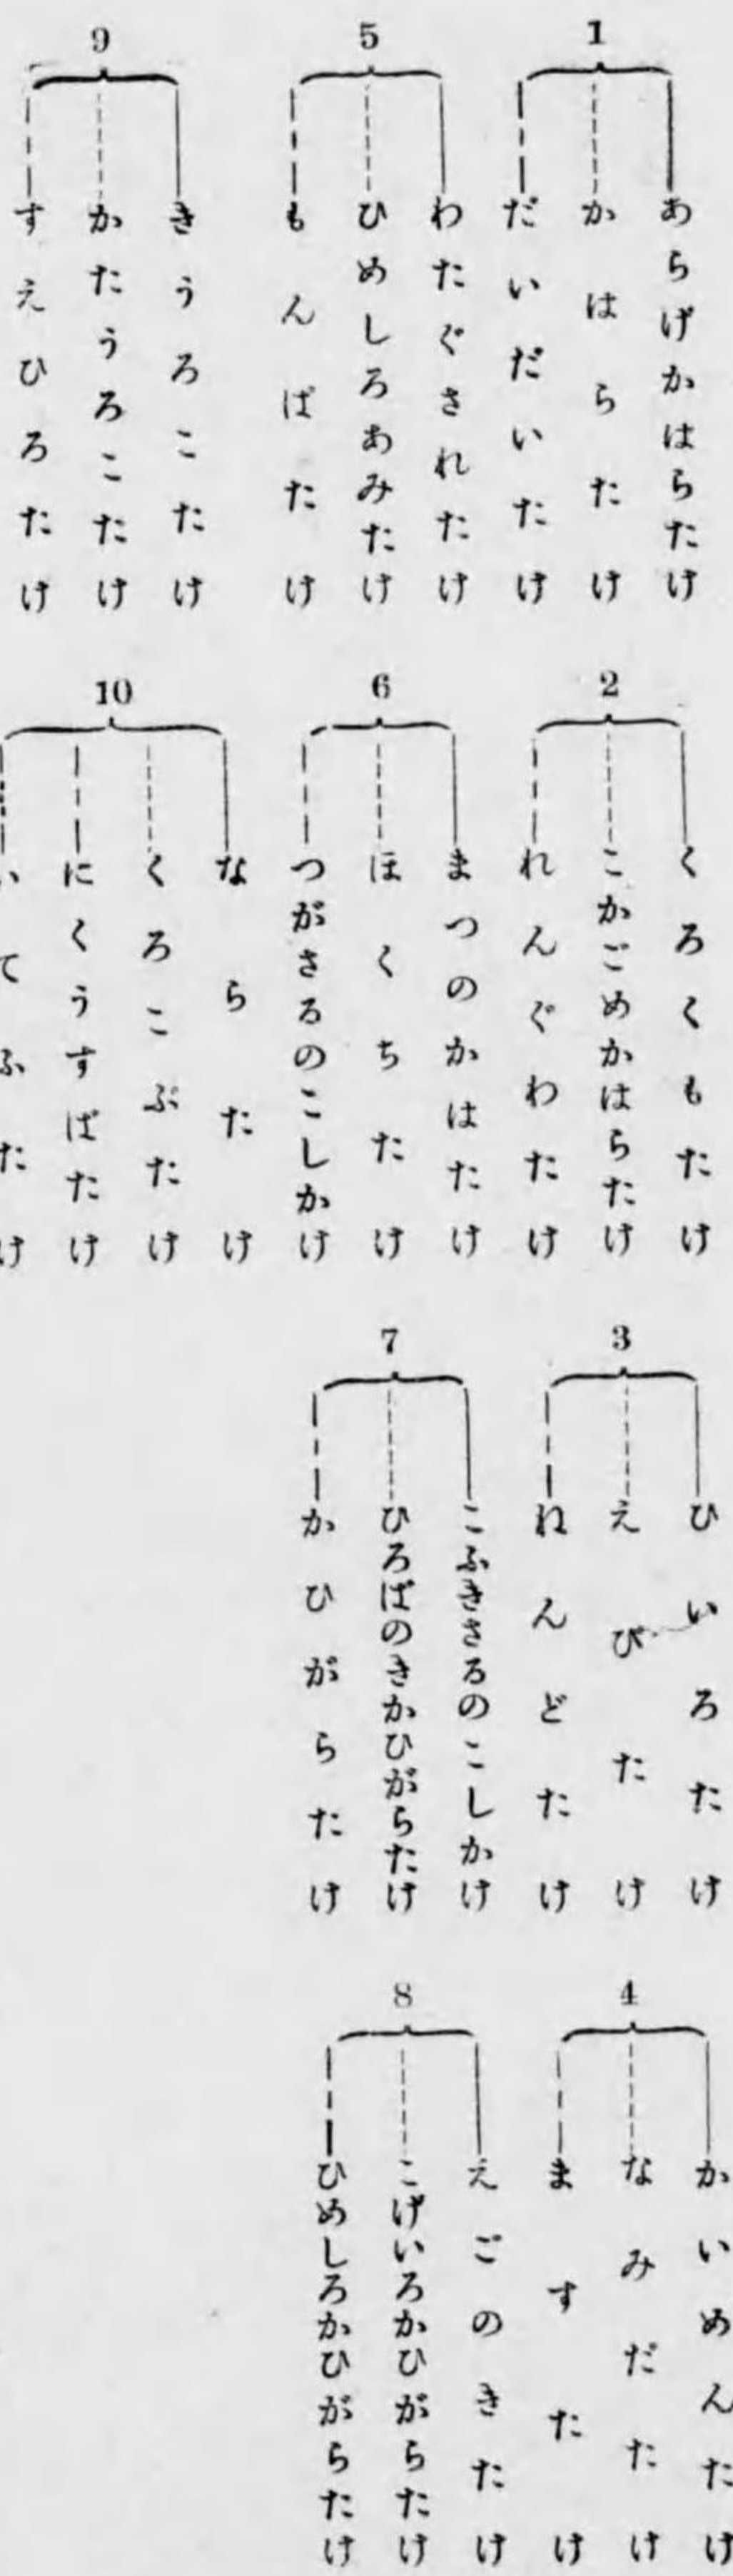 1
あらげかはらたけ
かはらたけ
だいだいたけ
2
くろくもたけ
こかごめかはらたけ
れんぐわたけ
3
ひいろたけ
えびたけ
ねんどたけ
4
かいめんたけ
なみだたけ
ますたけ
5
わたぐされたけ
ひめしろあみたけ
もんぱたけ
6
まつのかはたけ
ほくちたけ
つがさるのこしかけ
7
こふきさるのこしかけ
ひろばのきかひがらたけ
かひがらたけ
8
えごのきたけ
こげいろかひがらたけ
ひめしろかひがらたけ
9
きうろこたけ
かたうろこたけ
すえひろたけ
10
ならたけ
くろこぶたけ
にくうすばたけ
いてふたけ